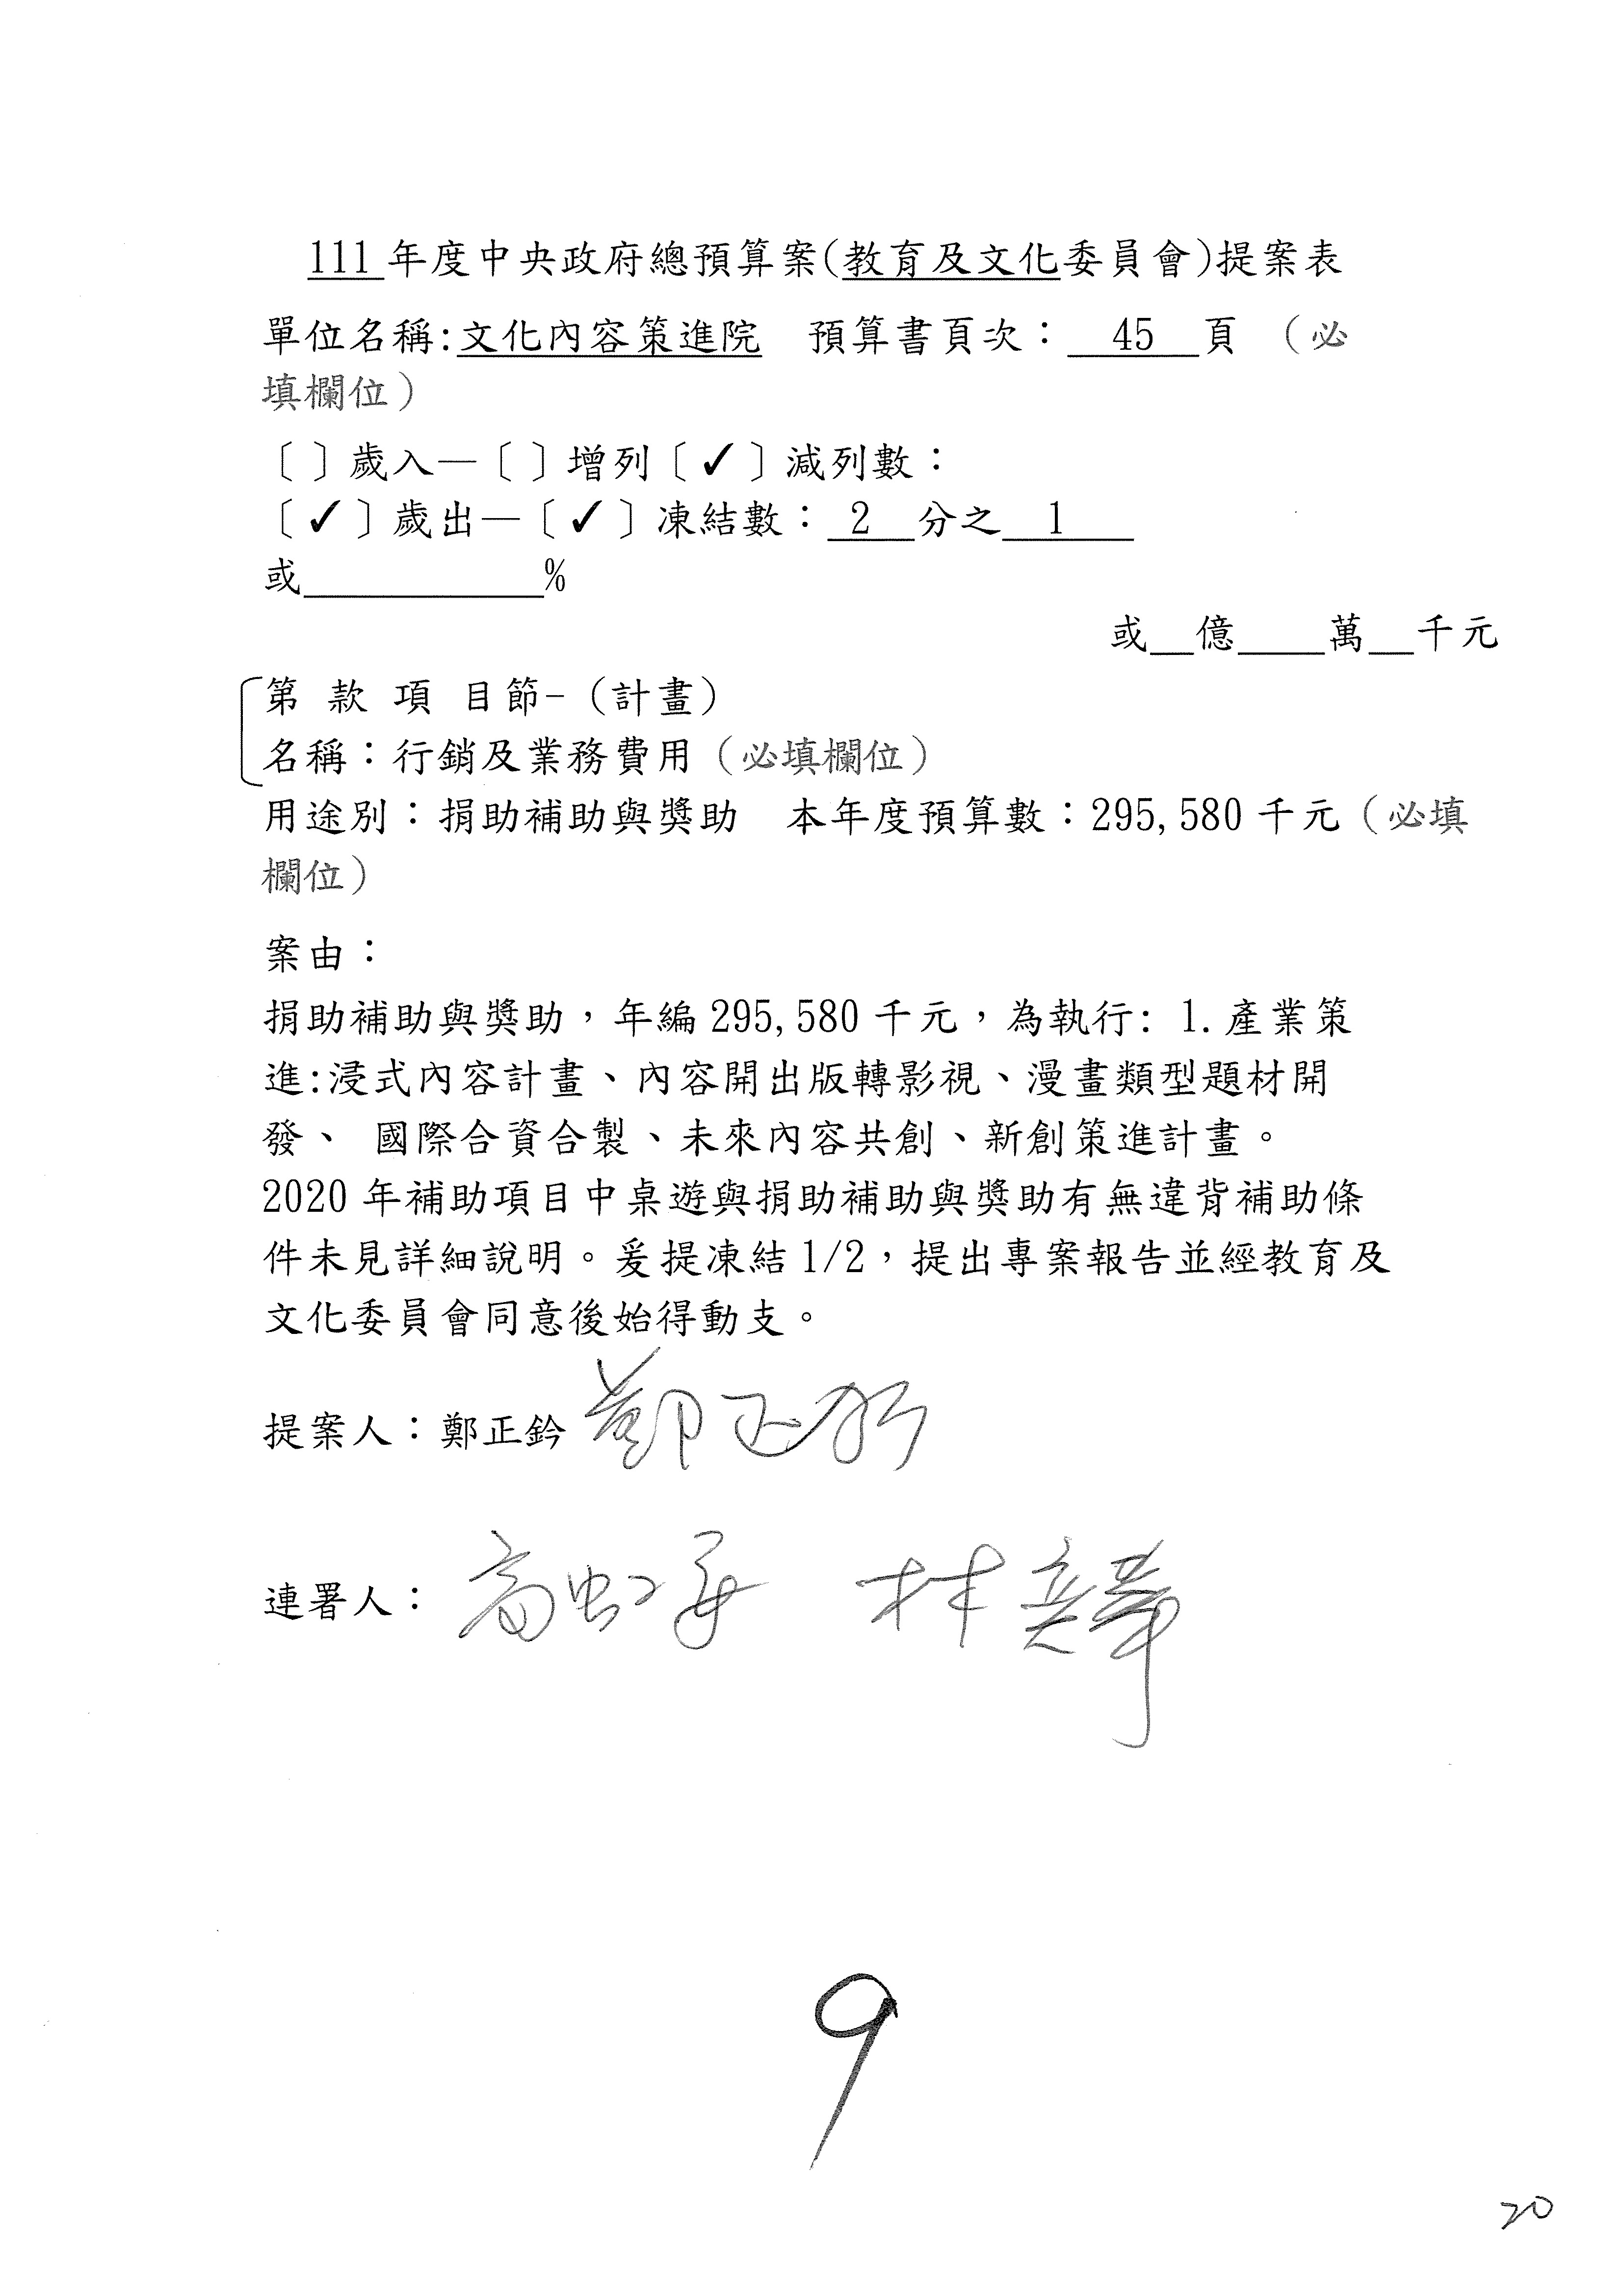 111 年度中央政府總預算案(教育及文化委員會)提案表
單位名稱:文化內容策進院 預算書頁次：45 頁 （必
填欄位）
〔 〕歲入—〔 〕增列〔✓〕減列數：
〔✓〕歲出—〔✓〕凍結數：2 分之 1
或__________%
或__億____萬__千元
第 款 項 目節-（計畫）
名稱：行銷及業務費用（必填欄位）
用途別：捐助補助與獎助 本年度預算數：295,580 千元（必填
欄位）
案由：
捐助補助與獎助，年編 295,580 千元，為執行: 1.產業策
進:浸式內容計畫、內容開出版轉影視、漫畫類型題材開
發、 國際合資合製、未來內容共創、新創策進計畫。
2020 年補助項目中桌遊與捐助補助與獎助有無違背補助條
件未見詳細說明。爰提凍結 1/2，提出專案報告並經教育及
文化委員會同意後始得動支。
提案人：鄭正鈐 鄭正鈐
連署人： 高虹安 林奕華
9
20